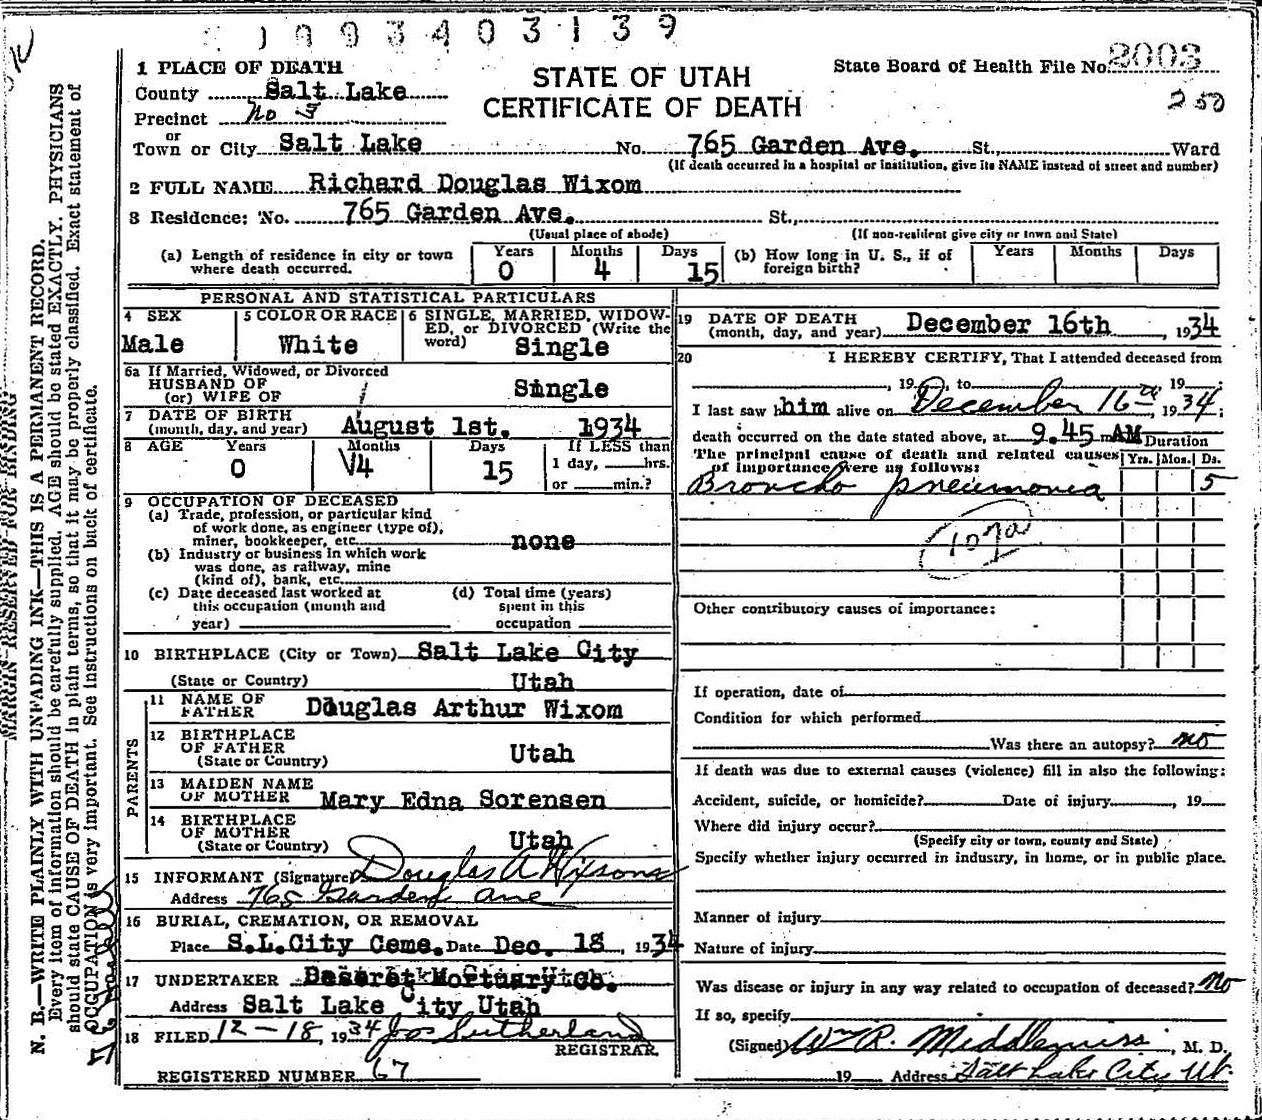 1 PLACE OF DEATH
County Salt Lake
Precinct No 5
or
Town or City Salt Lake No. 765 Garden Ave. St., Ward
STATE OF UTAH
CERTIFICATE OF DEATH
State Board of Health File No. 2003
250
(If death occurred in a hospital or institution, give its NAME instead of street and number)
2 FULL NAME Richard Douglas Wixom
3 Residence: No. 765 Garden Ave. St.,
(Usual place of abode) (If non-resident give city or town and State)
(a) Length of residence in city or town where death occurred. Years 0 Months 4 Days 15
(b) How long in U. S., if of foreign birth? Years Months Days
PERSONAL AND STATISTICAL PARTICULARS
4 SEX Male
5 COLOR OR RACE White
6 SINGLE, MARRIED, WIDOWED, or DIVORCED (Write the word) Single
6a If Married, Widowed, or Divorced
HUSBAND OF
(or) WIFE OF Single
7 DATE OF BIRTH
(month, day, and year) August 1st. 1934
8 AGE Years 0 Months 4 Days 15 If LESS than
1 day, hrs.
or min.?
9 OCCUPATION OF DECEASED
(a) Trade, profession, or particular kind
of work done, as engineer (type of),
miner, bookkeeper, etc. none
(b) Industry or business in which work
was done, as railway, mine
(kind of), bank, etc.
(c) Date deceased last worked at
this occupation (month and
year)
(d) Total time (years)
spent in this
occupation
10 BIRTHPLACE (City or Town) Salt Lake City
(State or Country) Utah
PARENTS
11 NAME OF
FATHER Douglas Arthur Wixom
12 BIRTHPLACE
OF FATHER
(State or Country) Utah
13 MAIDEN NAME
OF MOTHER Mary Edna Sorensen
14 BIRTHPLACE
OF MOTHER
(State or Country) Utah
15 INFORMANT (Signature) Douglas A Wixom
Address 765 Garden Ave
16 BURIAL, CREMATION, OR REMOVAL
Place S.L.City Ceme. Date Dec. 18, 1934
17 UNDERTAKER Deseret Mortuary Co.
Address Salt Lake City Utah
18 FILED 12-18, 1934 Jos Sutherland
REGISTRAR
REGISTERED NUMBER 67
19 DATE OF DEATH
(month, day, and year) December 16th, 1934
20 I HEREBY CERTIFY, That I attended deceased from
, 19 , to , 19 ;
I last saw him alive on December 16th, 1934;
death occurred on the date stated above, at 9.45 m AM
The principal cause of death and related causes
of importance were as follows:
Duration
Yrs. Mos. Ds.
Broncho pneumonia 5
107a
Other contributory causes of importance:
If operation, date of
Condition for which performed
Was there an autopsy? no
If death was due to external causes (violence) fill in also the following:
Accident, suicide, or homicide? Date of injury , 19
Where did injury occur?
(Specify city or town, county and State)
Specify whether injury occurred in industry, in home, or in public place.
Manner of injury
Nature of injury
Was disease or injury in any way related to occupation of deceased? No
If so, specify
(Signed) Wm R. Middlemiss, M. D.
19 Address Salt Lake City Ut.
MARGIN RESERVED FOR BINDING
N. B.—WRITE PLAINLY WITH UNFADING INK—THIS IS A PERMANENT RECORD.
Every item of information should be carefully supplied. AGE should be stated EXACTLY. PHYSICIANS
should state CAUSE OF DEATH in plain terms, so that it may be properly classified. Exact statement of
OCCUPATION is very important. See instructions on back of certificate.